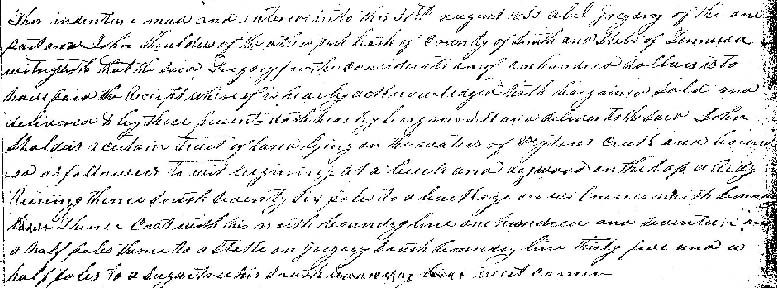 This indenture mad and entered into this 30th august 1833 abel Gregory of the one
part and John Shoulders of the other part both of County of Smith and State of Tennessee
witnesseth that the said Gregory for the consideration of one hundred dollars is to
him paid the Receipt whereof is hereby acknowledged hath bargained Sold and
delivered & by these presents doth hereby bargain sell and deliver to the said John
Sholders a certain tract of land lying on the waters of creek and bound
ed as followeth to wit begining at a beech and dogwood on the top a Ridg
Runing thence South seventy six poles to a on corner with
thence East with his north boundry line one hundred and seventeen and
a half poles thence to a Stake on Gregory South boundry line thirty five and a
half poles to a Sugartree his South west corner